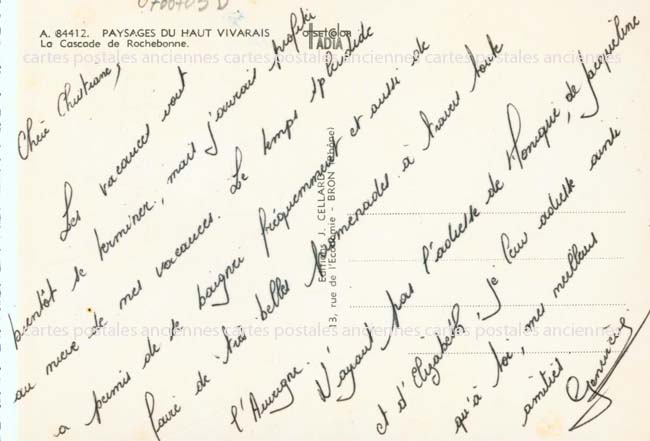 0700703 D
A. 84412. PAYSAGES DU HAUT VIVARAIS
La Cascade de Rochebonne.
offset Color
IADIA
Editions J. CELLARD
13, rue de l'Economie - BRON (Rhône)
Chère Christiane,
Les vacances vont
bientôt se terminer, mais j'aurais profité
au mieux de mes vacances. Le temps splendide
a permis de se baigner fréquemment et aussi de
faire de très belles promenades à travers toute
l'Auvergne. N'ayant pas l'adresse de Monique, de Jacqueline
et d'Elizabeth, je leur adresse ainsi
qu'à toi, mes meilleures
amitiés
Geneviève
cartes postales anciennes cartes postales anciennes cartes postales anciennes
cartes postales anciennes cartes postales anciennes cartes postales anciennes